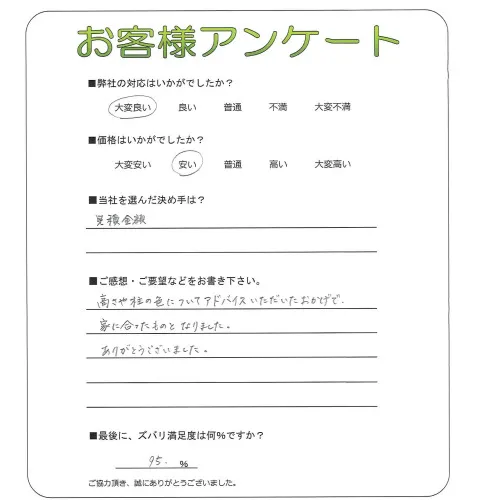 お客様アンケート
■弊社の対応はいかがでしたか？
大変良い 良い 普通 不満 大変不満
■価格はいかがでしたか？
大変安い 安い 普通 高い 大変高い
■当社を選んだ決め手は？
見積金額
■ご感想・ご要望などをお書き下さい。
高さや柱の色についてアドバイスいただいたおかげで、
家に合ったものとなりました。
ありがとうございました。
■最後に、ズバリ満足度は何％ですか？
95. ％
ご協力頂き、誠にありがとうございました。